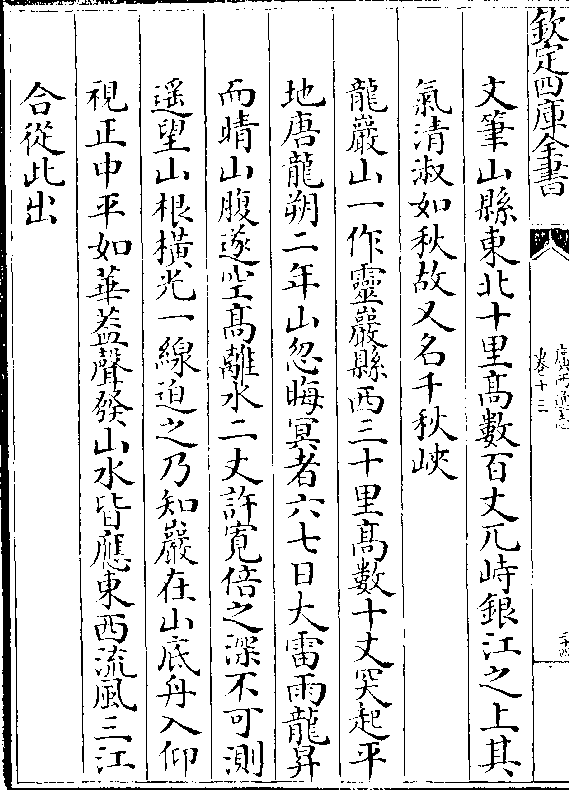 欽定四庫全書
廣西通志
卷十三
文筆山縣東北十里髙數百丈兀峙銀江之上其
氣清淑如秋故又名千秋峽
龍巖山一作靈巖縣西三十里髙數十丈突起平
地唐龍朔二年山忽晦冥者六七日大雷雨龍昇
而晴山腹遂空髙離水二丈許寛倍之深不可測
遥望山根橫光一線迫之乃知巖在山底舟入仰
視正中平如華葢聲發山水皆應東西流風三江
合從此出